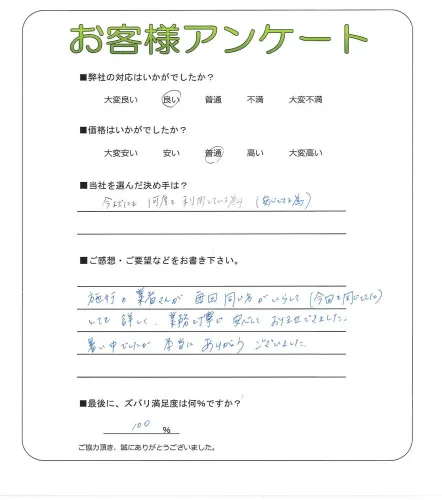 お客様アンケート
■弊社の対応はいかがでしたか？
大変良い 良い 普通 不満 大変不満
■価格はいかがでしたか？
大変安い 安い 普通 高い 大変高い
■当社を選んだ決め手は？
今までにも 何度も 利用している為 (安心できる為)
■ご感想・ご要望などをお書き下さい。
施行の業者さんが 毎回 同じ方がいらして (今回も同じでした)
とても 詳しく、業務も丁寧で 安心して おまかせできました。
暑い中でしたが 本当に ありがとう ございました。
■最後に、ズバリ満足度は何％ですか？
100 ％
ご協力頂き、誠にありがとうございました。